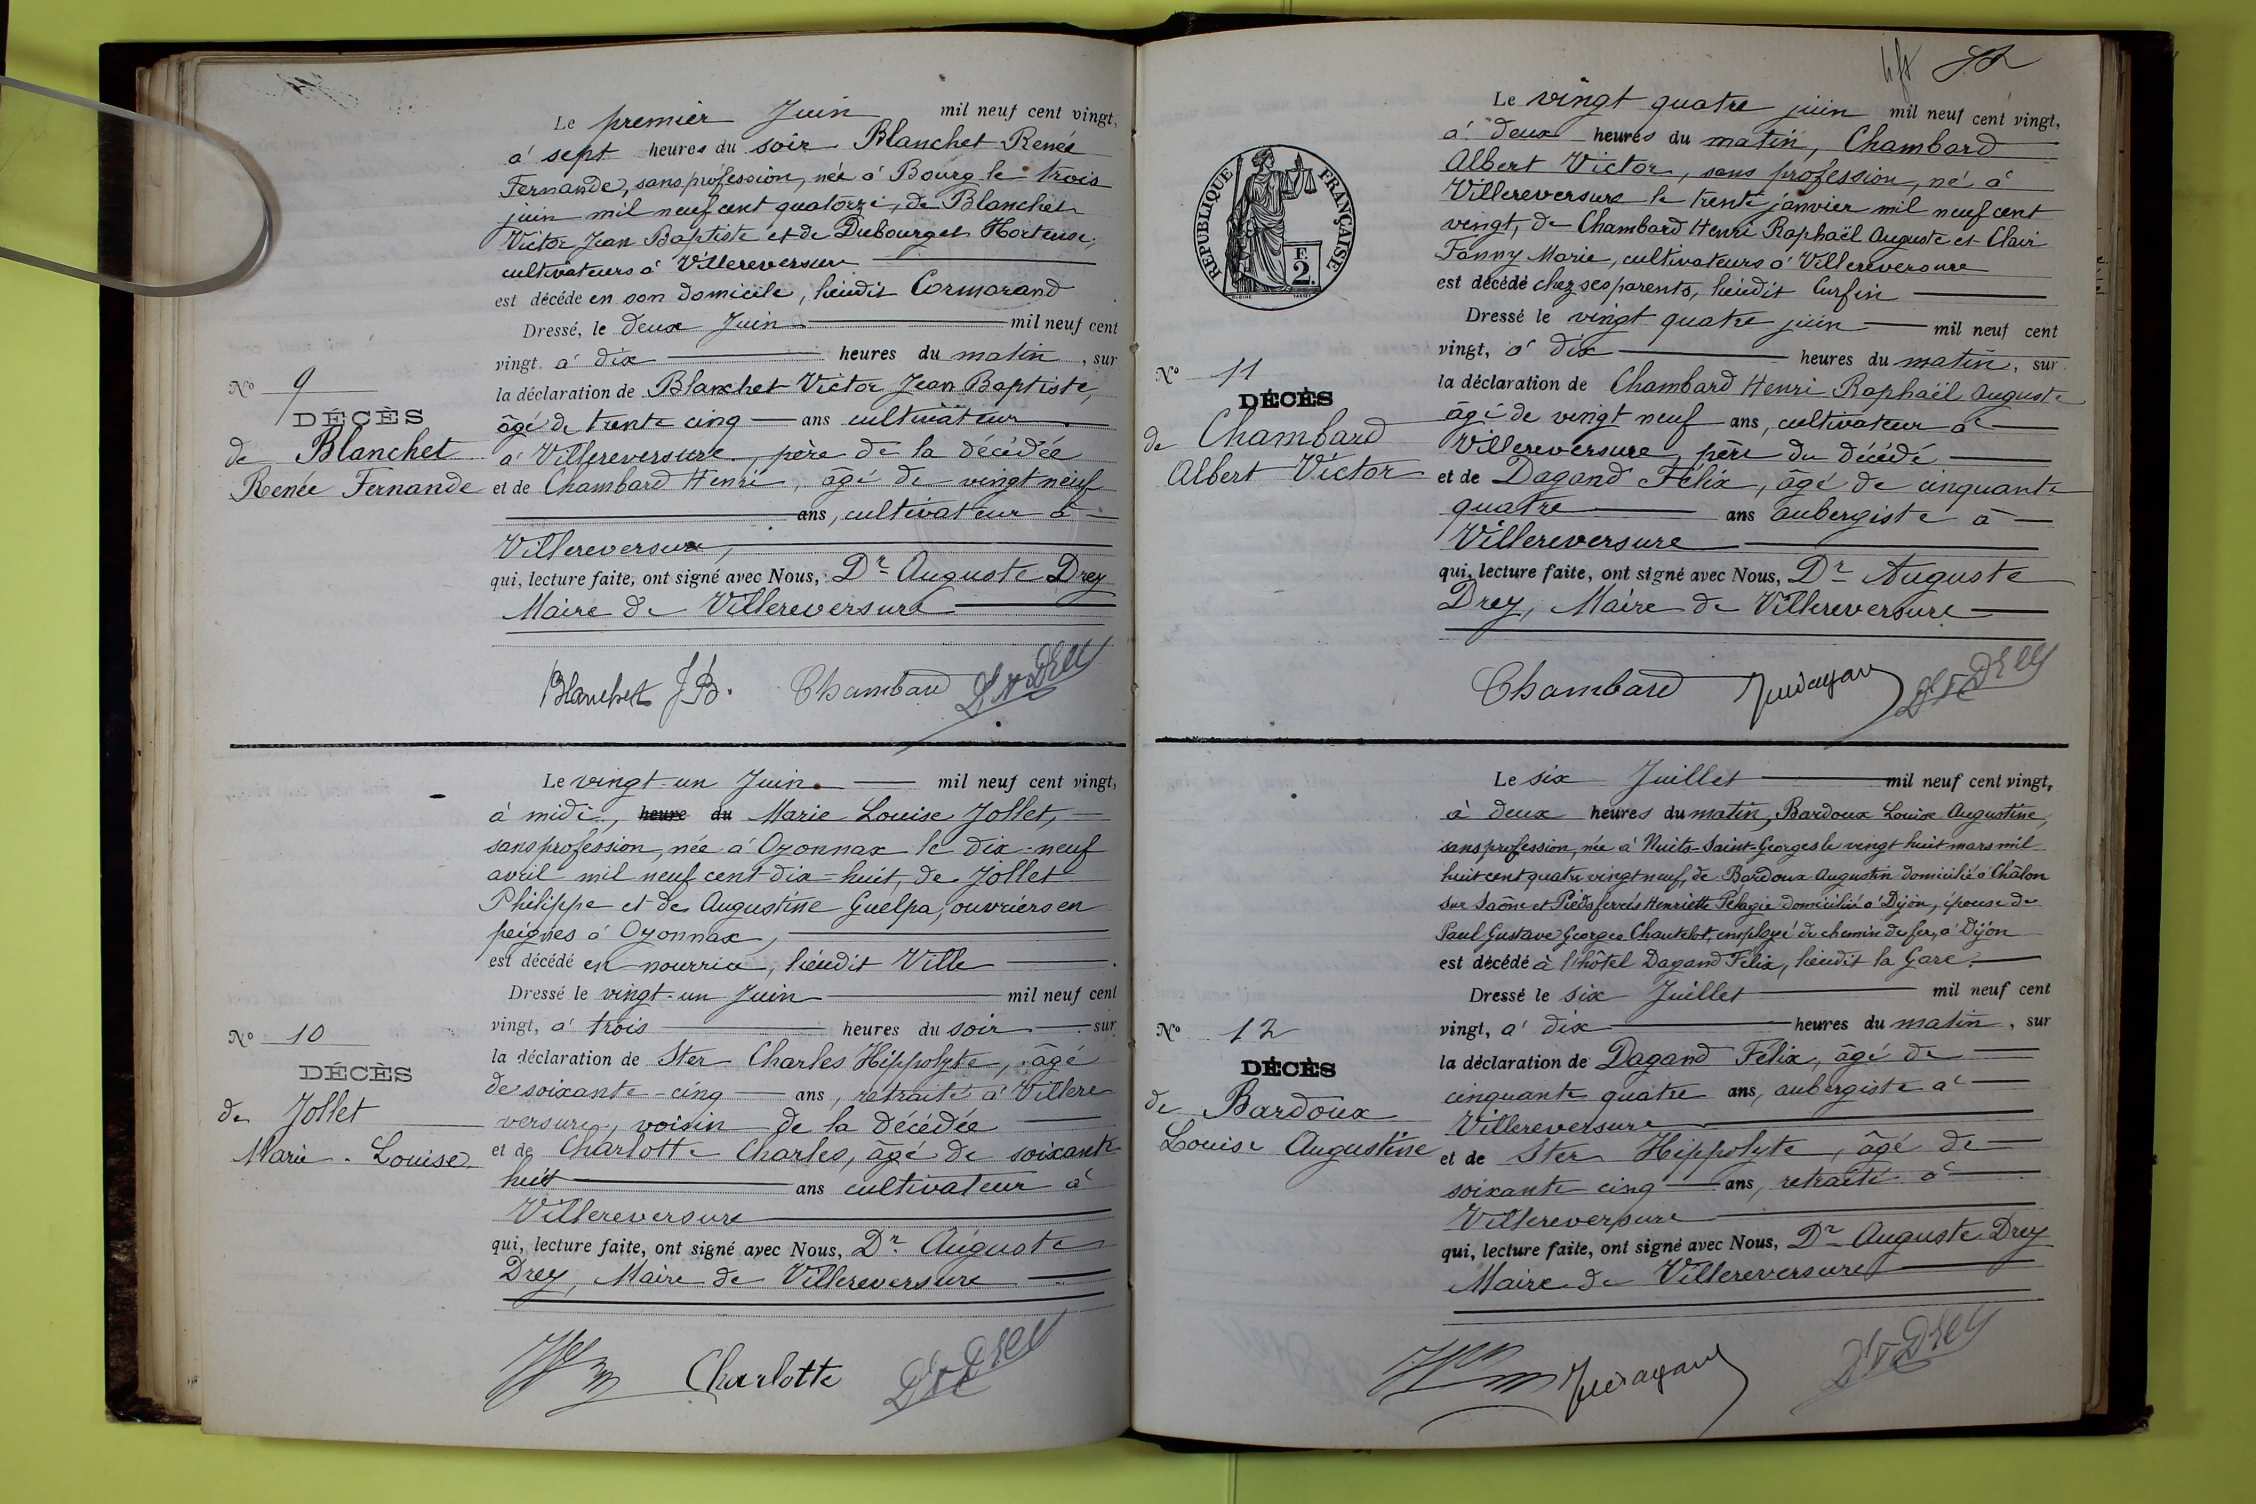 Le premier Juin mil neuf cent vingt,
à sept heures du soir Blanchet Renée
Fernande, sans profession, née à Bourg le trois
juin mil neuf cent quatorze, de Blanchet
Victor Jean Baptiste et de Dubourget Hortense,
cultivateurs à Villereversure
est décédé en son domicile, lieudit Cormorand
Dressé, le deux Juin mil neuf cent
vingt à dix heures du matin, sur
la déclaration de Blanchet Victor Jean Baptiste,
âgé de trente cinq ans cultivateur
à Villereversure, père de la décédée
et de Chambard Henri, âgé de vingt neuf
ans, cultivateur à
Villereversure,
qui, lecture faite, ont signé avec Nous, Dr Auguste Drey
Maire de Villereversure
No 9
DÉCÈS
de Blanchet
Renée Fernande
Blanchet JB. Chambard Dr A Drey
Le vingt-un Juin mil neuf cent vingt,
à midi, heure du Marie Louise Jollet,
sans profession, née à Oyonnax le dix-neuf
avril mil neuf cent dix-huit, de Jollet
Philippe et de Augustine Guelpa, ouvriers en
peignes à Oyonnax,
est décédé en nourrice, lieudit Ville
Dressé le vingt-un Juin mil neuf cent
vingt, à trois heures du soir sur
la déclaration de Ster Charles Hippolyte, âgé
de soixante-cinq ans, retraité à Villere
versure, voisin de la décédée
et de Charlotte Charles, âgé de soixante
huit ans cultivateur à
Villereversure
qui, lecture faite, ont signé avec Nous, Dr Auguste
Drey, Maire de Villereversure
No 10
DÉCÈS
de Jollet
Marie-Louise
Charlotte Dr A Drey
RÉPUBLIQUE FRANÇAISE
F.
2.
Le vingt quatre juin mil neuf cent vingt,
à deux heures du matin, Chambard
Albert Victor, sans profession, né à
Villereversure le trente janvier mil neuf cent
vingt, de Chambard Henri Raphaël Auguste et Clair
Fanny Marie, cultivateurs à Villereversure
est décédé chez ses parents, lieudit Curfin
Dressé le vingt quatre juin mil neuf cent
vingt, à dix heures du matin, sur
la déclaration de Chambard Henri Raphaël Auguste
âgé de vingt neuf ans, cultivateur à
Villereversure, père du décédé
et de Dagand Félix, âgé de cinquante
quatre ans aubergiste à
Villereversure
qui, lecture faite, ont signé avec Nous, Dr Auguste
Drey, Maire de Villereversure
No 11
DÉCÈS
de Chambard
Albert Victor
Chambard Dr A Drey
Le six Juillet mil neuf cent vingt,
à deux heures du matin, Bardoux Louise Augustine,
sans profession, née à Nuits-Saint-Georges le vingt huit mars mil
huit cent quatre vingt neuf, de Bardoux Augustin domicilié à Châlon
sur Saône et Piedsferrés Henriette Pélagie domiciliée à Dijon, épouse de
Paul Gustave Georges Chautelot, employé de chemin de fer, à Dijon
est décédé à l'hôtel Dagand Félix, lieudit la Gare.
Dressé le six Juillet mil neuf cent
vingt, à dix heures du matin, sur
la déclaration de Dagand Félix, âgé de
cinquante quatre ans, aubergiste à
Villereversure
et de Ster Hippolyte, âgé de
soixante cinq ans, retraité à
Villereversure
qui, lecture faite, ont signé avec Nous, Dr Auguste Drey
Maire de Villereversure
No 12
DÉCÈS
de Bardoux
Louise Augustine
Dr A Drey